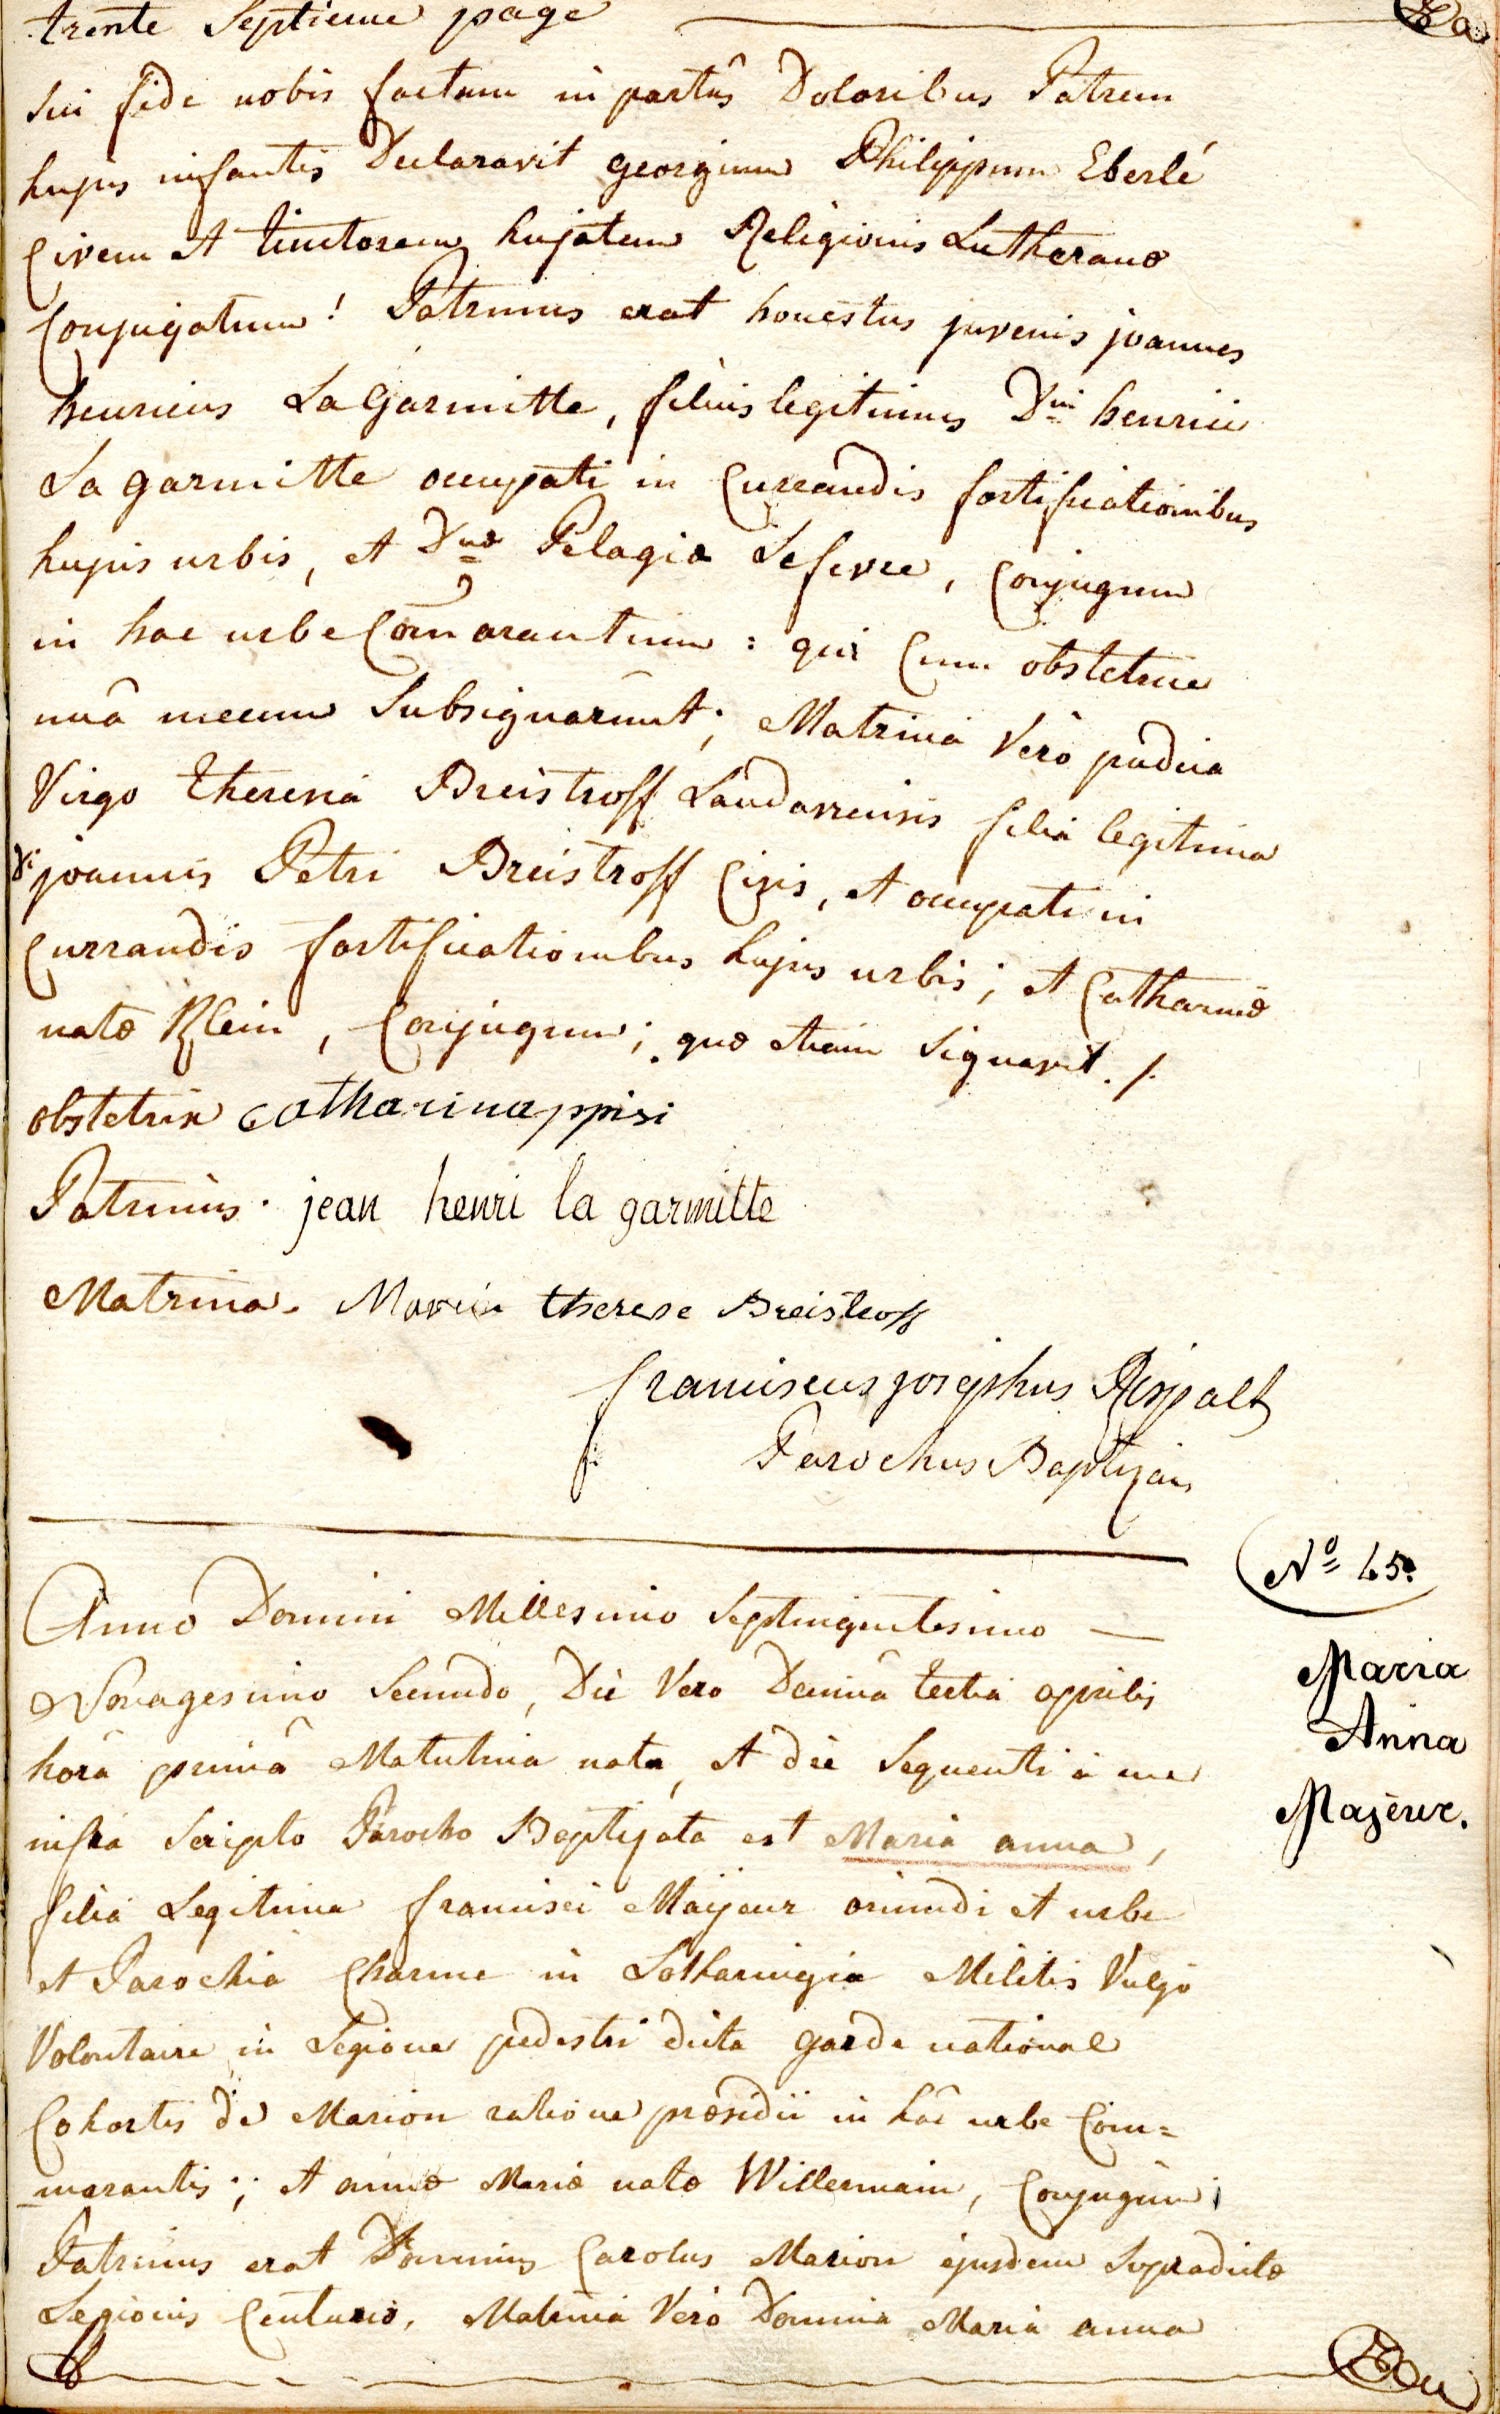 trente Septieme page
sui fide nobis factam in partûs Doloribus Patrem
hujus infantis Declaravit georgium Philippum Eberlé
Civem et tinctorem hujatem Religionis Lutheranæ
Conjugatum! Patrinus erat honestus juvenis joannes
henricus LaGarmitte, filius legitimus Dni henrici
La garmitte occupati in Currandis fortificationibus
hujus urbis, et Dnæ Pelagiæ Lefevre, Conjugum
in hac urbe Com̄orantium: qui Cum obstetrice
unâ mecum Subsignarunt; Matrina Vero pudica
Virgo theresia Breistroff Landaviensis filia legitima
Di joannis Petri Breistroff Civis, et occupati in
Currandis fortificationibus hujus urbis; et Catharinæ
natæ Klein, Conjugum; quæ etiam Signavit ./.
obstetrix catharina ppisi
Patrinus. jean henri la garmitte
Matrina. Maria therese Breistroff
franciscus josephus Rispalt
Parochus Baptizans
Nº 45.
Maria
Anna
Majeur.
Anno Domini Millesimo Septingentesimo —
Nonagesimo Secundo, Die Vero Decimâ tertia aprilis
horâ primâ Matutina nata, et die Sequenti a me
infra Scripto Parocho Baptizata est Maria anna,
filia Legitima francisci Maijeur oriundi et urbe
et Parochia Charme in Lotharingia Militis Vulgo
Volontaire in Legione pedestri dicta garde national
Cohortis de Marion ratione præsidii in hâc urbe Com=
morantis; et annæ Mariæ natæ Willermain, Conjugum;
Patrinus erat Dominus Carolus Marion ejusdem Supradictæ
Legionis Centurio, Matrina Vero Domina Maria anna